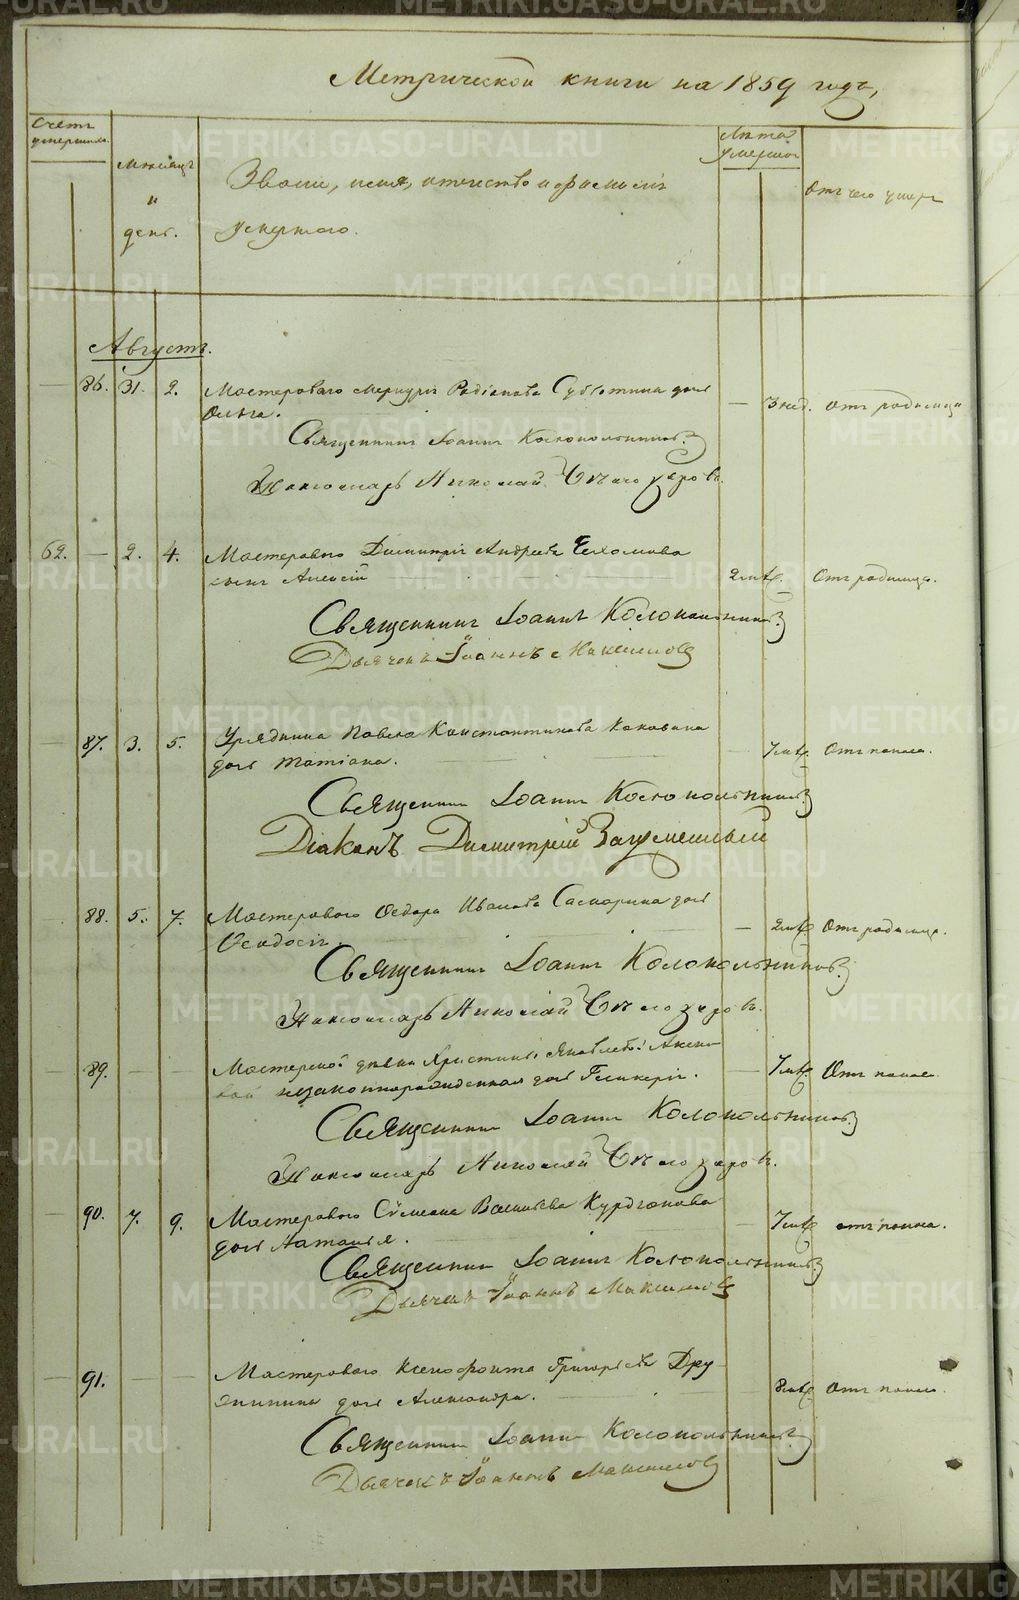 Метрической книги на 1859 годъ,
Счетъ умершихъ.
Мѣсяцъ и день.
Званіе, имя, отчество и фамилія
умершаго.
Лѣта умершаго
Отъ чего умеръ
Августъ.
86. 31. 2. Мастероваго Меркурія Родіонова Субботина дочь
Ольга. 3 нед. отъ родимца
Священникъ Іоаннъ Колокольниковъ
Пономарь Николай
62. 2. 4. Мастероваго Димитрія Андреева
сынъ Алексій 2 мѣс. Отъ родимца.
Священникъ Іоаннъ Колокольниковъ
Дьячекъ Іоаннъ Максимовъ
87. 3. 5. Урядника Павла Константинова Каковина
дочь Татіана. 7 мѣс. Отъ поноса.
Священникъ Іоаннъ Колокольниковъ
Діаконъ Димитрій
88. 5. 7. Мастероваго Ѳедора Иванова дочь
Ѳеодосія. 2 мѣс. Отъ родимца.
Священникъ Іоаннъ Колокольниковъ.
Пономарь Николай
89. Мастерской дѣвки Христины Яковлевой
незаконнорожденная дочь Гликерія. 7 мѣс. Отъ поноса
Священникъ Іоаннъ Колокольниковъ
Пономарь Николай
90. 7. 9. Мастероваго Сѵмеона Васильева Курдюкова
дочь Наталья. 7 мѣс. отъ поноса.
Священникъ Іоаннъ Колокольниковъ
Дьячекъ Іоаннъ Максимовъ
91. Мастероваго Ксенофонта Григорьева Дру-
жинина дочь Александра. 8 мѣс. Отъ поноса.
Священникъ Іоаннъ Колокольниковъ
Дьячекъ Іоаннъ Максимовъ
METRIKI.GASO-URAL.RU